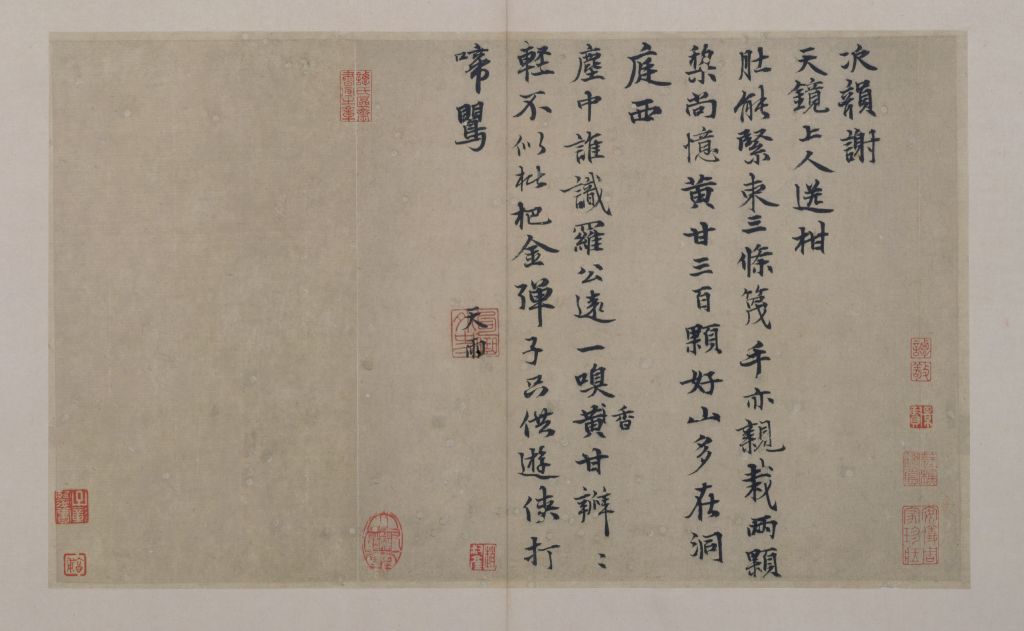 次韻謝
天鏡上人送柑
肚能緊束三條篾手亦親栽兩顆
棃尚憶黄甘三百顆好山多在洞
庭西
塵中誰識羅公遠一嗅黄甘瓣〻
香
軽不似枇杷金彈子只供遊俠打
啼鸎
天雨
安儀周家珍藏